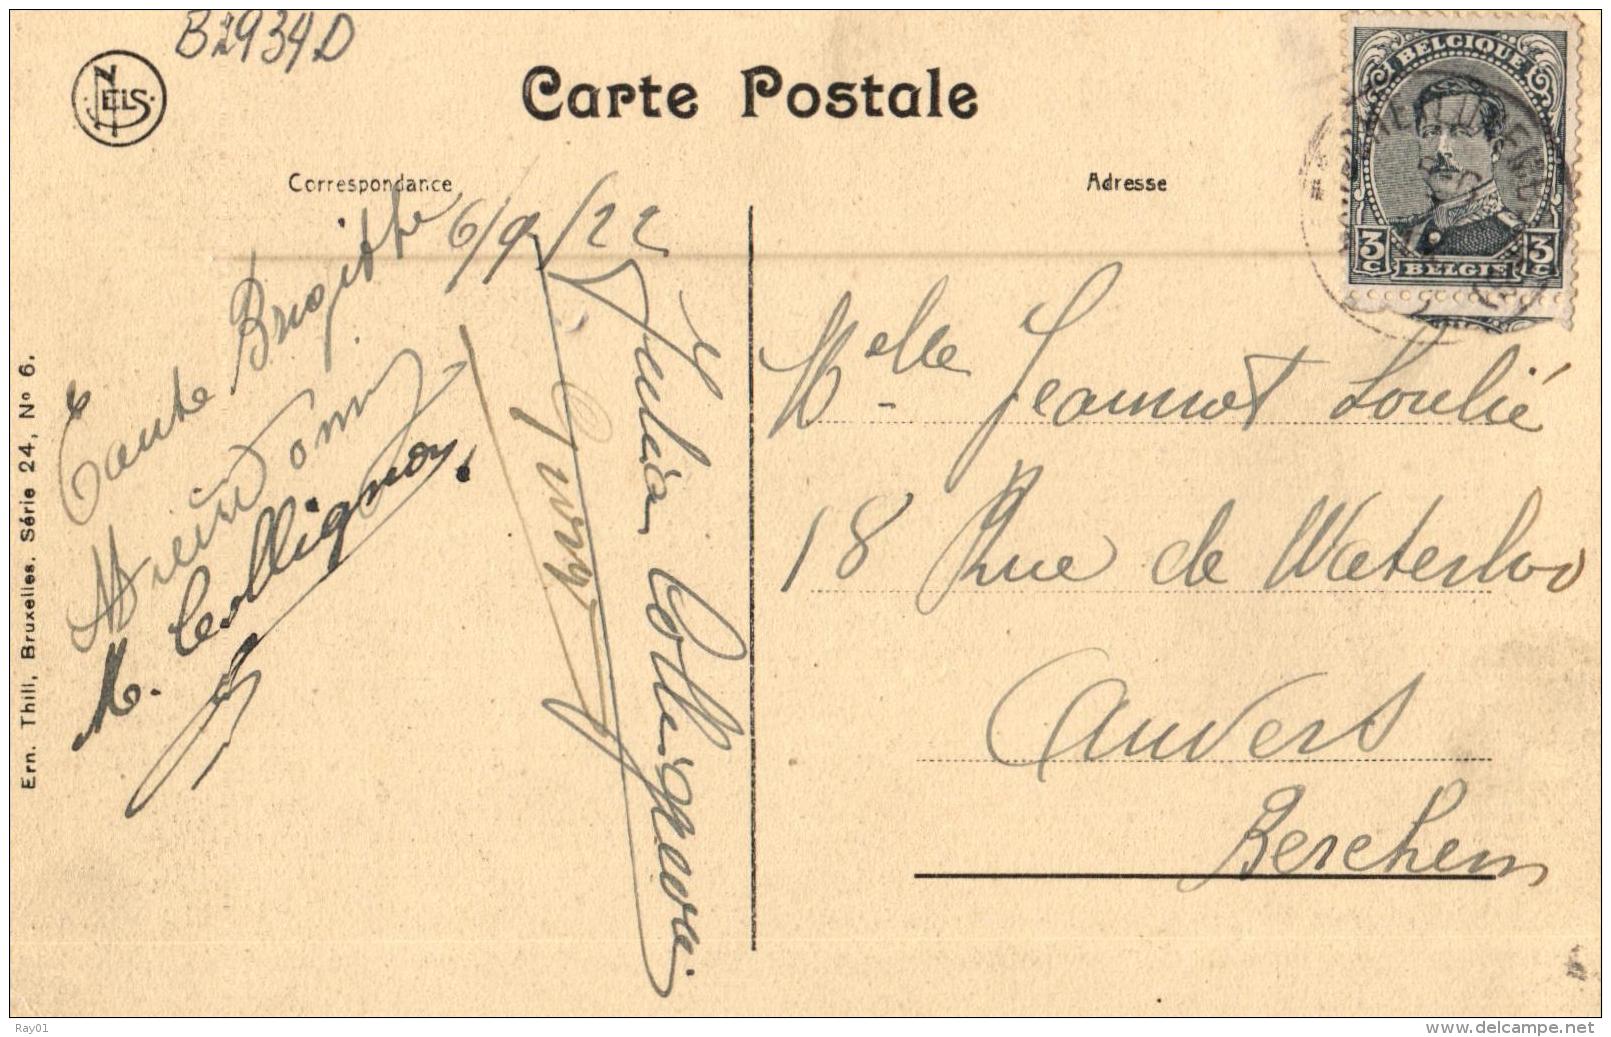 B2934D
NELS
Carte Postale
Correspondance
Adresse
BELGIQUE
3c 3c
BELGIE
6/9/22
Tante Brigitte
M. Collignon.
Julia Collignon
Melle Jeannot Soulié
18 Rue de Waterloo
Anvers
Berchem
Ern. Thill, Bruxelles. Série 24, No 6.
Ray01
www.delcampe.net